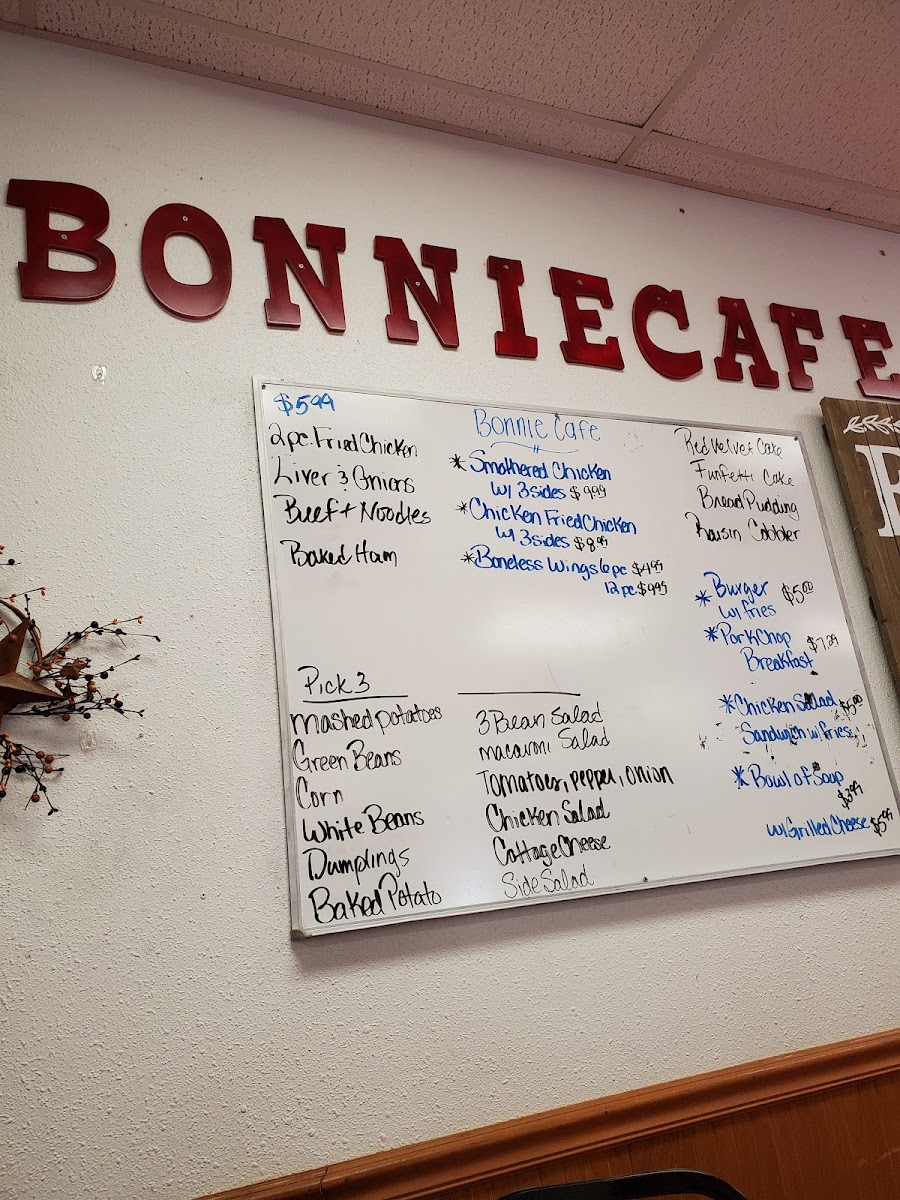 BONNIE CAFE
$5.99
2pc. Fried Chicken
Liver & Onions
Beef + Noodles
Baked Ham
Pick 3
Mashed potatoes
Green Beans
Corn
White Beans
Dumplings
Baked Potato
Bonnie Cafe
* Smothered Chicken
w/ 3 sides $9.99
* Chicken Fried Chicken
w/ 3 sides $8.99
* Boneless Wings 6pc $4.99
12 pc. $9.95
3 Bean Salad
macaroni Salad
Tomatoes, pepper, onion
Chicken Salad
Cottage Cheese
Side Salad
Red Velvet Cake
Funfetti Cake
Bread Pudding
Raisin Cobbler
* Burger $5.00
w/ fries
* Pork Chop $7.29
Breakfast
* Chicken Salad
Sandwich w/ fries
* Bowl of Soup
$3.99
w/ Grilled Cheese $5.99